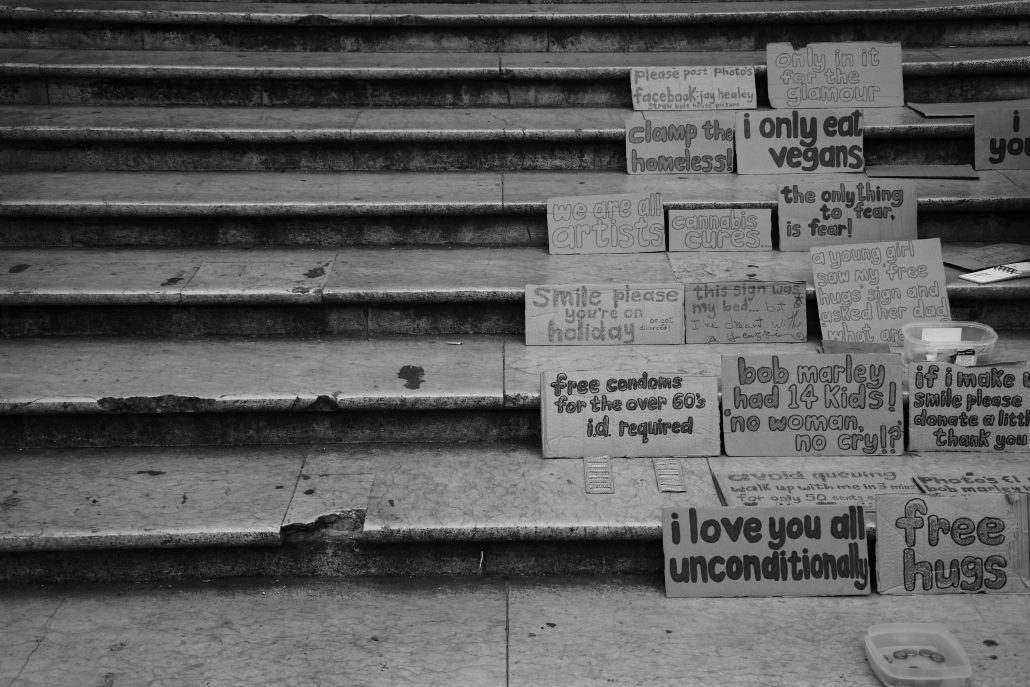 only in it
for the
glamour
please post photo's
facebook: jay healey
straw bale house picture
clamp the
homeless!
i only eat
vegans
i
you
we are all
artists
cannabis
cures...
the only thing
to fear,
is fear!
a young girl
saw my 'free
hugs' sign and
asked her dad
'what are
Smile please
you're on
holiday
or got
divorced!
this sign was
my bed... but
I've dealt with
free condoms
for the over 60's
i.d. required
bob marley
had 14 kids!
'no woman,
no cry!?'
if i make
smile please
donate a little
thank you
avoid queuing
walk up with me in 3 mins
for only 50 cents
Photo's €1
bob marley
i love you all
unconditionally
free
hugs